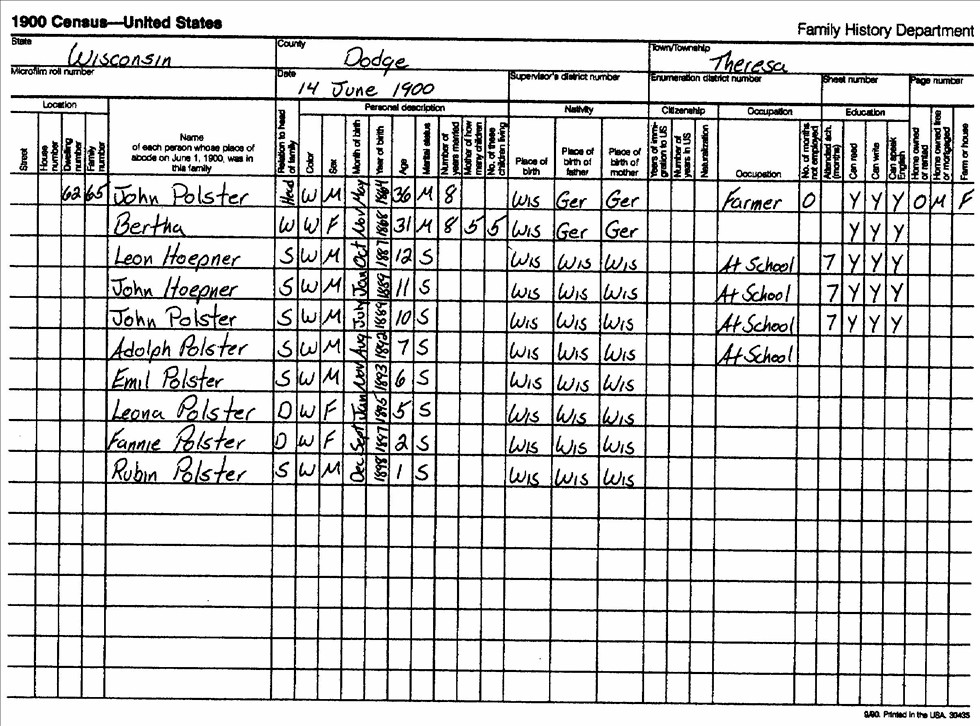 1900 Census—United States
Family History Department
State Wisconsin County Dodge Town/Township Theresa
Microfilm roll number Date 14 June 1900 Supervisor's district number Enumeration district number Sheet number Page number
Location Personal description Nativity Citizenship Occupation Education
Street House number Dwelling number Family number Name of each person whose place of abode on June 1, 1900, was in this family Relation to head of family Color Sex Month of birth Year of birth Age Marital status Number of years married Mother of how many children No. of these children living Place of birth Place of birth of father Place of birth of mother Years of immigration to US Number of years in US Naturalization Occupation No. of months not employed Attended sch. (months) Can read Can write Can speak English Home owned or rented Home owned free or mortgaged Farm or house
62 65 John Polster Head W M May 1864 36 M 8 Wis Ger Ger Farmer 0 Y Y Y O M F
Bertha W W F Nov 1868 31 M 8 5 5 Wis Ger Ger Y Y Y
Leon Hoepner S W M Oct 1887 12 S Wis Wis Wis At School 7 Y Y Y
John Hoepner S W M Jan 1889 11 S Wis Wis Wis At School 7 Y Y Y
John Polster S W M July 1889 10 S Wis Wis Wis At School 7 Y Y Y
Adolph Polster S W M Aug 1892 7 S Wis Wis Wis At School
Emil Polster S W M Nov 1893 6 S Wis Wis Wis
Leona Polster D W F Jan 1895 5 S Wis Wis Wis
Fannie Polster D W F Sept 1897 2 S Wis Wis Wis
Rubin Polster S W M Dec 1898 1 S Wis Wis Wis
9/90. Printed in the USA. 30435